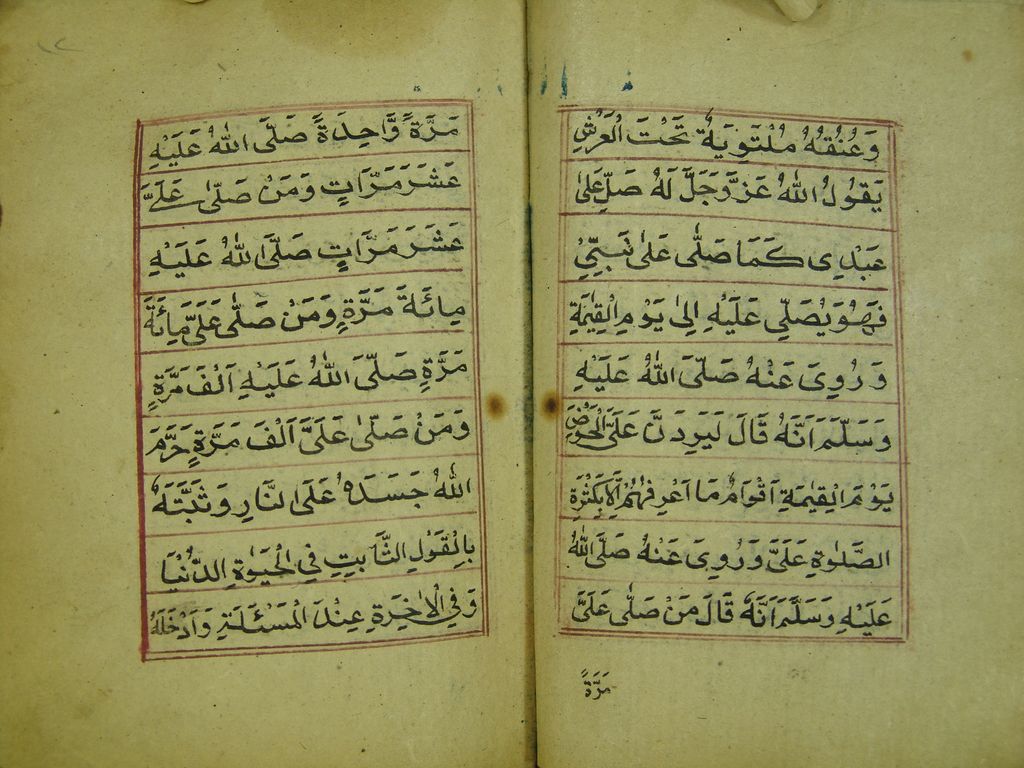 وَعُنُقُهُ مُلْتَوِيَةٌ تَحْتَ الْعَرْشِ
يَقُولُ اللّٰهُ عَزَّ وَجَلَّ لَهُ صَلِّ عَلىٰ
عَبْدِى كَمَا صَلّٰى عَلىٰ نَبِيِّى
فَهُوَ يُصَلِّى عَلَيْهِ اِلىٰ يَوْمِ الْقِيٰمَةِ
وَرُوِىَ عَنْهُ صَلَّى اللّٰهُ عَلَيْهِ
وَسَلَّمَ اَنَّهُ قَالَ لَيَرِدَنَّ عَلَىَّ الْحَوْضَ
يَوْمَ الْقِيٰمَةِ اَقْوَامٌ مَا اَعْرِفُهُمْ اِلَّا بِكَثْرَةِ
الصَّلٰوةِ عَلَىَّ وَرُوِىَ عَنْهُ صَلَّى اللّٰهُ
عَلَيْهِ وَسَلَّمَ اَنَّهُ قَالَ مَنْ صَلّٰى عَلَىَّ
مَرَّةً
١٢
مَرَّةً وَّاحِدَةً صَلَّى اللّٰهُ عَلَيْهِ
عَشْرَ مَرَّاتٍ وَمَنْ صَلّٰى عَلَىَّ
عَشْرَ مَرَّاتٍ صَلَّى اللّٰهُ عَلَيْهِ
مِائَةَ مَرَّةٍ وَمَنْ صَلّٰى عَلَىَّ مِائَةَ
مَرَّةٍ صَلَّى اللّٰهُ عَلَيْهِ اَلْفَ مَرَّةٍ
وَمَنْ صَلّٰى عَلَىَّ اَلْفَ مَرَّةٍ حَرَّمَ
اللّٰهُ جَسَدَهُ عَلَى النَّارِ وَثَبَّتَهُ
بِالْقَوْلِ الثَّابِتِ فِى الْحَيٰوةِ الدُّنْيَا
وَفِى الْاٰخِرَةِ عِنْدَ الْمَسْئَلَةِ وَاَدْخَلَهُ